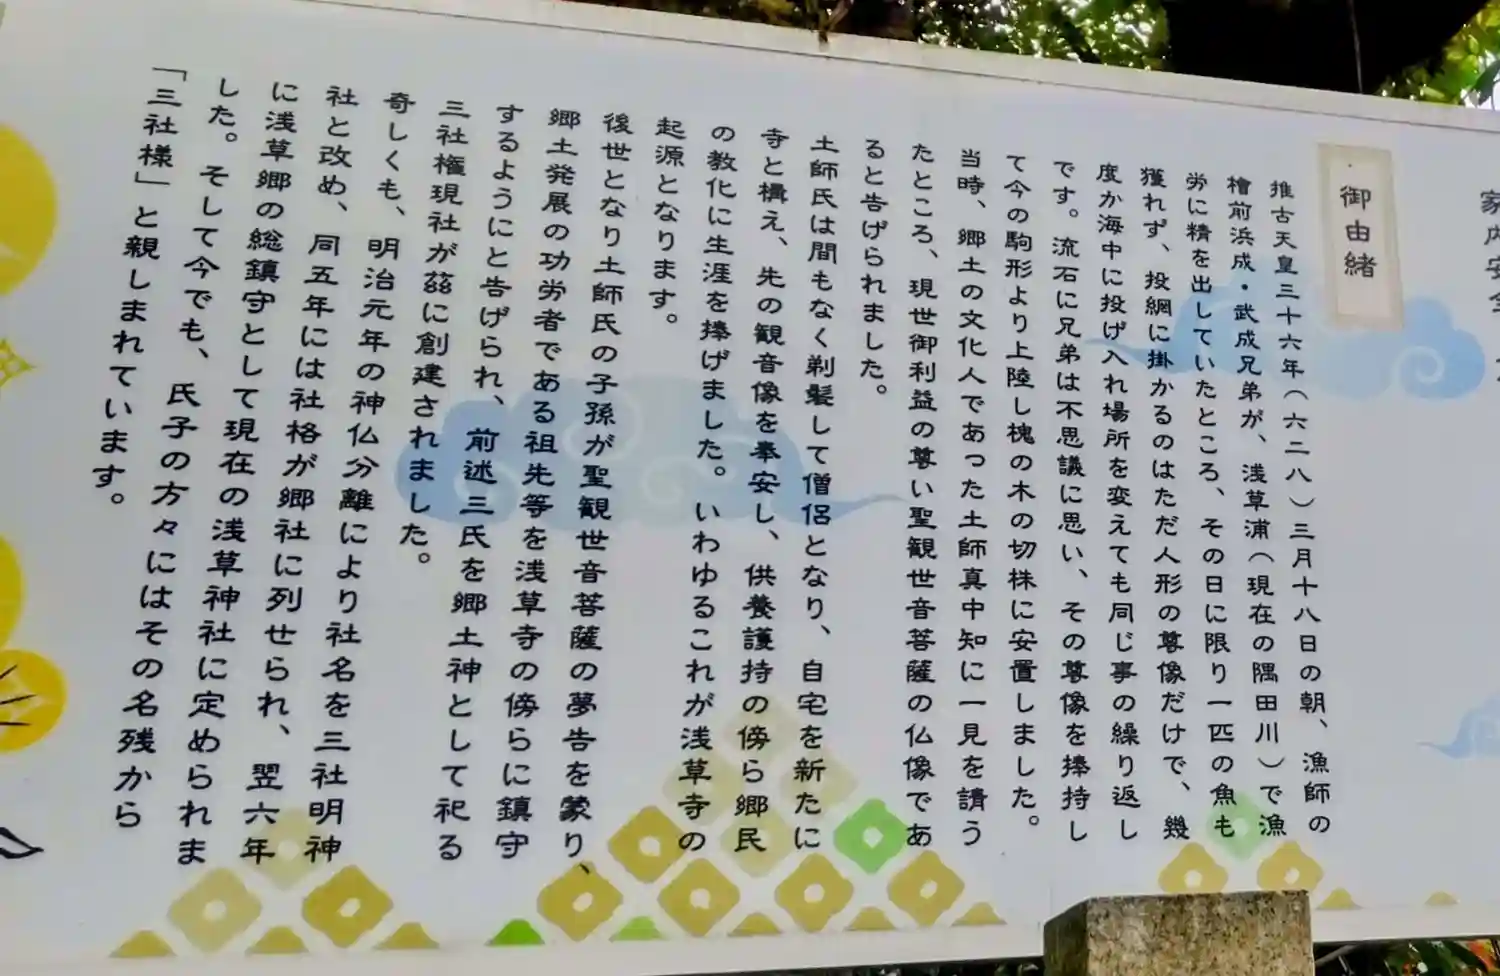 家内安全
御由緒
推古天皇三十六年（六二八）三月十八日の朝、漁師の
檜前浜成・武成兄弟が、浅草浦（現在の隅田川）で漁
労に精を出していたところ、その日に限り一匹の魚も
獲れず、投網に掛かるのはただ人形の尊像だけで、幾
度か海中に投げ入れ場所を変えても同じ事の繰り返し
です。流石に兄弟は不思議に思い、その尊像を捧持し
て今の駒形より上陸し槐の木の切株に安置しました。
当時、郷土の文化人であった土師真中知に一見を請う
たところ、現世御利益の尊い聖観世音菩薩の仏像であ
ると告げられました。
土師氏は間もなく剃髪して僧侶となり、自宅を新たに
寺と構え、先の観音像を奉安し、供養護持の傍ら郷民
の教化に生涯を捧げました。いわゆるこれが浅草寺の
起源となります。
後世となり土師氏の子孫が聖観世音菩薩の夢告を蒙り、
郷土発展の功労者である祖先等を浅草寺の傍らに鎮守
するようにと告げられ、前述三氏を郷土神として祀る
三社権現社が茲に創建されました。
奇しくも、明治元年の神仏分離により社名を三社明神
社と改め、同五年には社格が郷社に列せられ、翌六年
に浅草郷の総鎮守として現在の浅草神社に定められま
した。そして今でも、氏子の方々にはその名残から
「三社様」と親しまれています。